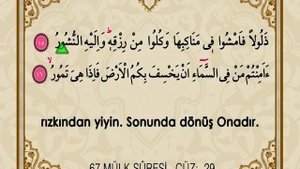 ذَلُولًا فَامْشُوا فِي مَنَاكِبِهَا وَكُلُوا مِنْ رِزْقِهِ وَإِلَيْهِ النُّشُورُ ﴿١٥﴾
ءَاَمِنْتُمْ مَنْ فِي السَّمَٓاءِ اَنْ يَخْسِفَ بِكُمُ الْاَرْضَ فَاِذَا هِيَ تَمُورُ ﴿١٦﴾
rızkından yiyin. Sonunda dönüş Onadır.
67 MÜLK SÛRESİ CÜZ: 29